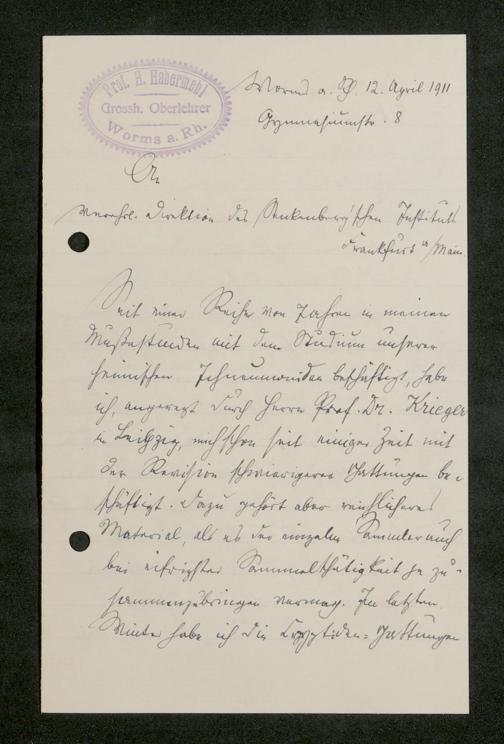 Prof. H. Habermehl
Grossh. Oberlehrer
Worms a. Rh.
Worms a. Rh. 12. April 1911
Gymnasiumstr. 8
An
verehrl. Direktion des Senkenberg'schen Instituts
Frankfurt a/Main.
Seit einer Reihe von Jahren in meinen
Mußestunden mit dem Studium unserer
heimischen Ichneumoniden beschäftigt, habe
ich, angeregt durch Herrn Prof. Dr. Krieger
in Leipzig, mich schon seit einiger Zeit mit
der Revision schwierigerer Gattungen be-
schäftigt. Dazu gehört aber reichlicheres
Material, als es der einzelne Sammler auch
bei eifrigster Sammelthätigkeit je zu-
sammenzubringen vermag. Im letzten
Winter habe ich die Cryptiden-Gattungen